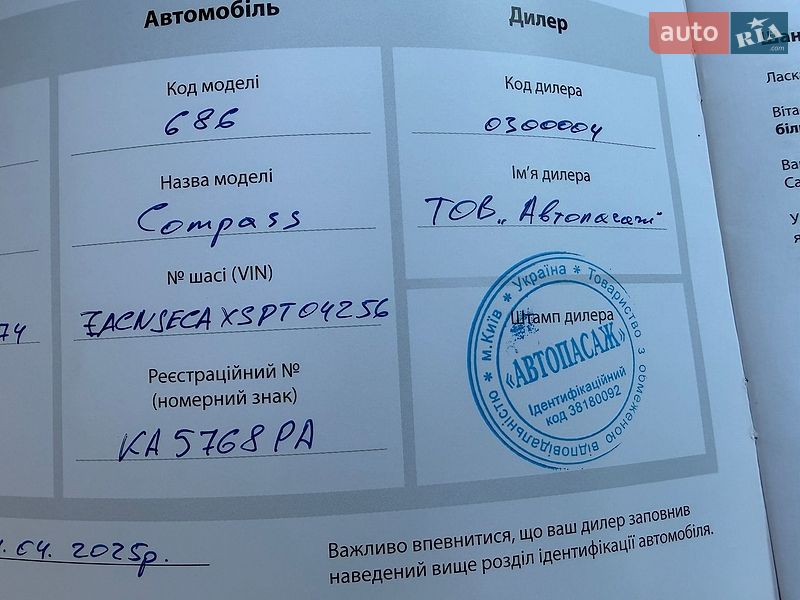 auto RIA .com
Автомобіль
Дилер
Код моделі
686
Код дилера
0300004
Назва моделі
Compass
Ім'я дилера
ТОВ „Автопасаж"
№ шасі (VIN)
ZACNJECAXSPT04256
Штамп дилера
м.Київ * Україна * Товариство з обмеженою відповідальністю *
«АВТОПАСАЖ»
Ідентифікаційний
код 38180092
Реєстраційний №
(номерний знак)
KA 5768 PA
74
04. 2025р.
Важливо впевнитися, що ваш дилер заповнив
наведений вище розділ ідентифікації автомобіля.
Ласк
Віта
біль
Ва
Са
У
я